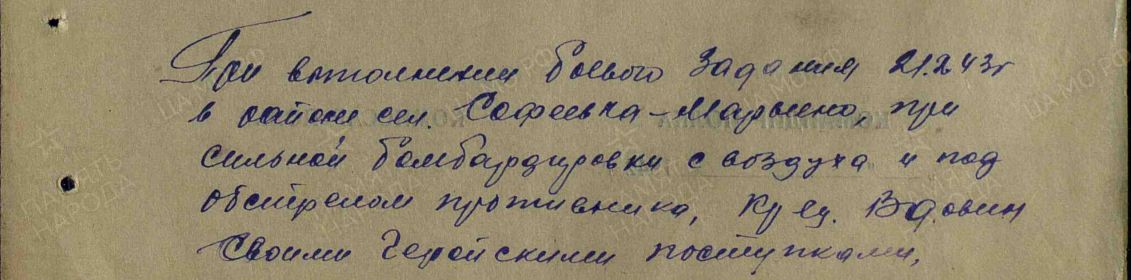 При выполнении боевого задания 21.2 43г
в районе сел. Софеевка-Марьино, при
сильной бомбардировки с воздуха и под
обстрелом противника, кр-ец. Вдовин
своими Геройскими поступками,